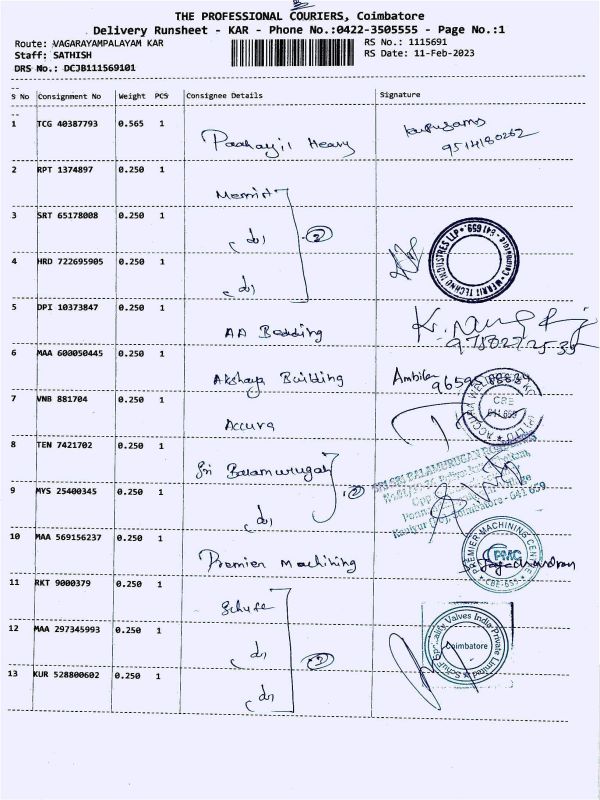 THE PROFESSIONAL COURIERS, Coimbatore
Delivery Runsheet - KAR - Phone No.:0422-3505555 - Page No.:1
Route: VAGARAYAMPALAYAM KAR
RS No.: 1115691
Staff: SATHISH
RS Date: 11-Feb-2023
DRS No.: DCJB111569101
S No Consignment No Weight PCS Consignee Details Signature
1 TCG 40387793 0.565 1
9514180262
2 RPT 1374897 0.250 1
3 SRT 65178008 0.250 1
(do)
MERRIT TECHNO INDUSTRES LLP
4 HRD 722695905 0.250 1
(do)
5 DPI 10373847 0.250 1 AA Bedding
6 MAA 600050445 0.250 1 Akshaya Building
7 VNB 881704 0.250 1 Accura
CBE
8 TEN 7421702 0.250 1 Sri Balamurugan
9 MYS 25400345 0.250 1
(do)
Coimbatore - 641 659
10 MAA 569156237 0.250 1 Premier Machining
PREMIER MACHINING CENTRE
PMC
CBE-659
11 RKT 9000379 0.250 1
12 MAA 297345993 0.250 1
(do)
Valves India Private Limited
Coimbatore
13 KUR 528800602 0.250 1
(do)